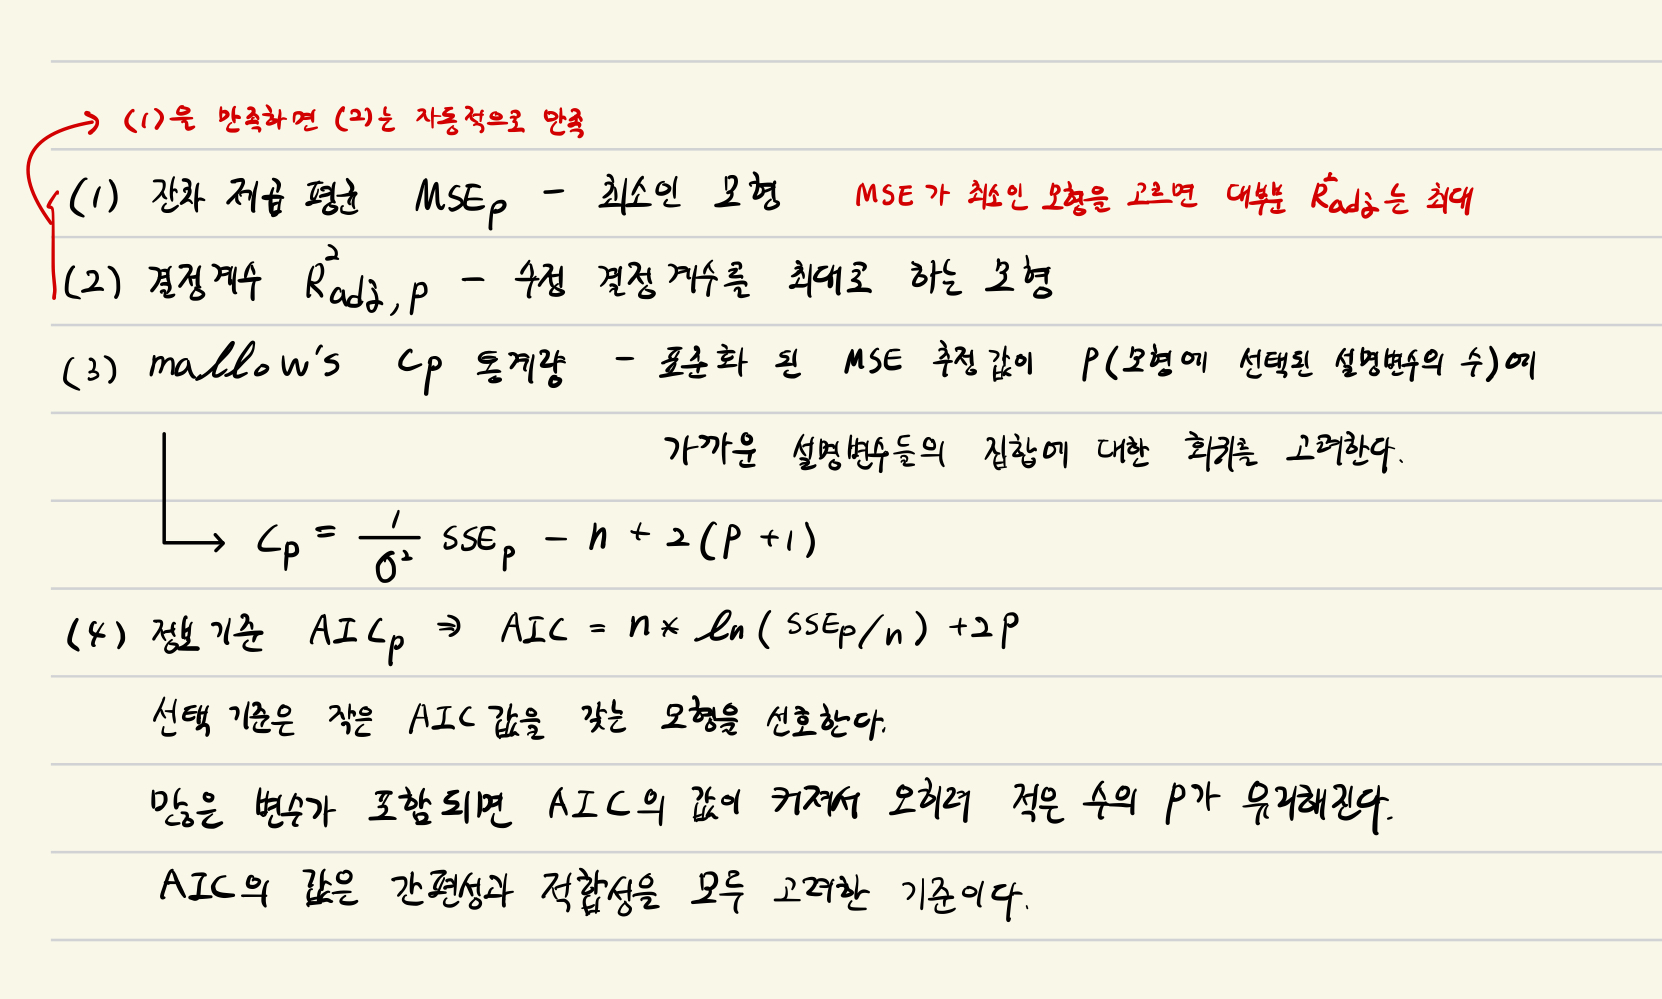 (1)을 만족하면 (2)는 자동적으로 만족
(1) 잔차 제곱 평균 MSEₚ - 최소인 모형 MSE가 최소인 모형을 고르면 대부분 R²adj는 최대
(2) 결정계수 R²adj,p - 수정 결정계수를 최대로 하는 모형
(3) mallow's Cp 통계량 - 표준화 된 MSE 추정값이 P(모형에 선택된 설명변수의 수)에
가까운 설명변수들의 집합에 대한 회귀를 고려한다.
Cp = 1/σ² SSEp - n + 2(P+1)
(4) 정보기준 AICp ⇒ AIC = n × ln(SSEp/n) + 2P
선택 기준은 작은 AIC 값을 갖는 모형을 선호한다.
많은 변수가 포함되면 AIC의 값이 커져서 오히려 적은 수의 P가 유리해진다.
AIC의 값은 간편성과 적합성을 모두 고려한 기준이다.